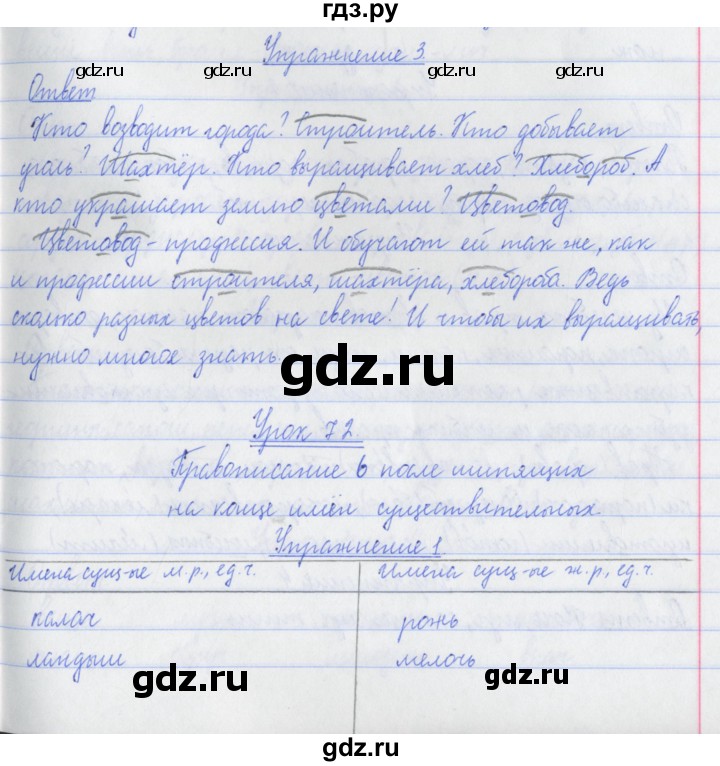 гдз.ру
Упражнение 3.
gdz.ru gdz.ru
Ответ
Кто возводит города? Строитель. Кто добывает
уголь? Шахтёр. Кто выращивает хлеб? Хлебороб. А
gdz.ru gdz.ru
кто украшает землю цветами? Цветовод.
Цветовод - профессия. И обучают ей так же, как
и профессии строителя, шахтёра, хлебороба. Ведь
сколько разных цветов на свете! И чтобы их выращивать,
нужно многое знать.
gdz.ru
Урок 72.
gdz.ru gdz.ru
Правописание ь после шипящих
на конце имён существительных.
Упражнение 1
gdz.ru gdz.ru
Имена сущ-ые м.р., ед.ч. Имена сущ-ые ж.р., ед.ч.
палач рожь
ландыш мелочь
gdz.ru gdz.ru
gdz.ru